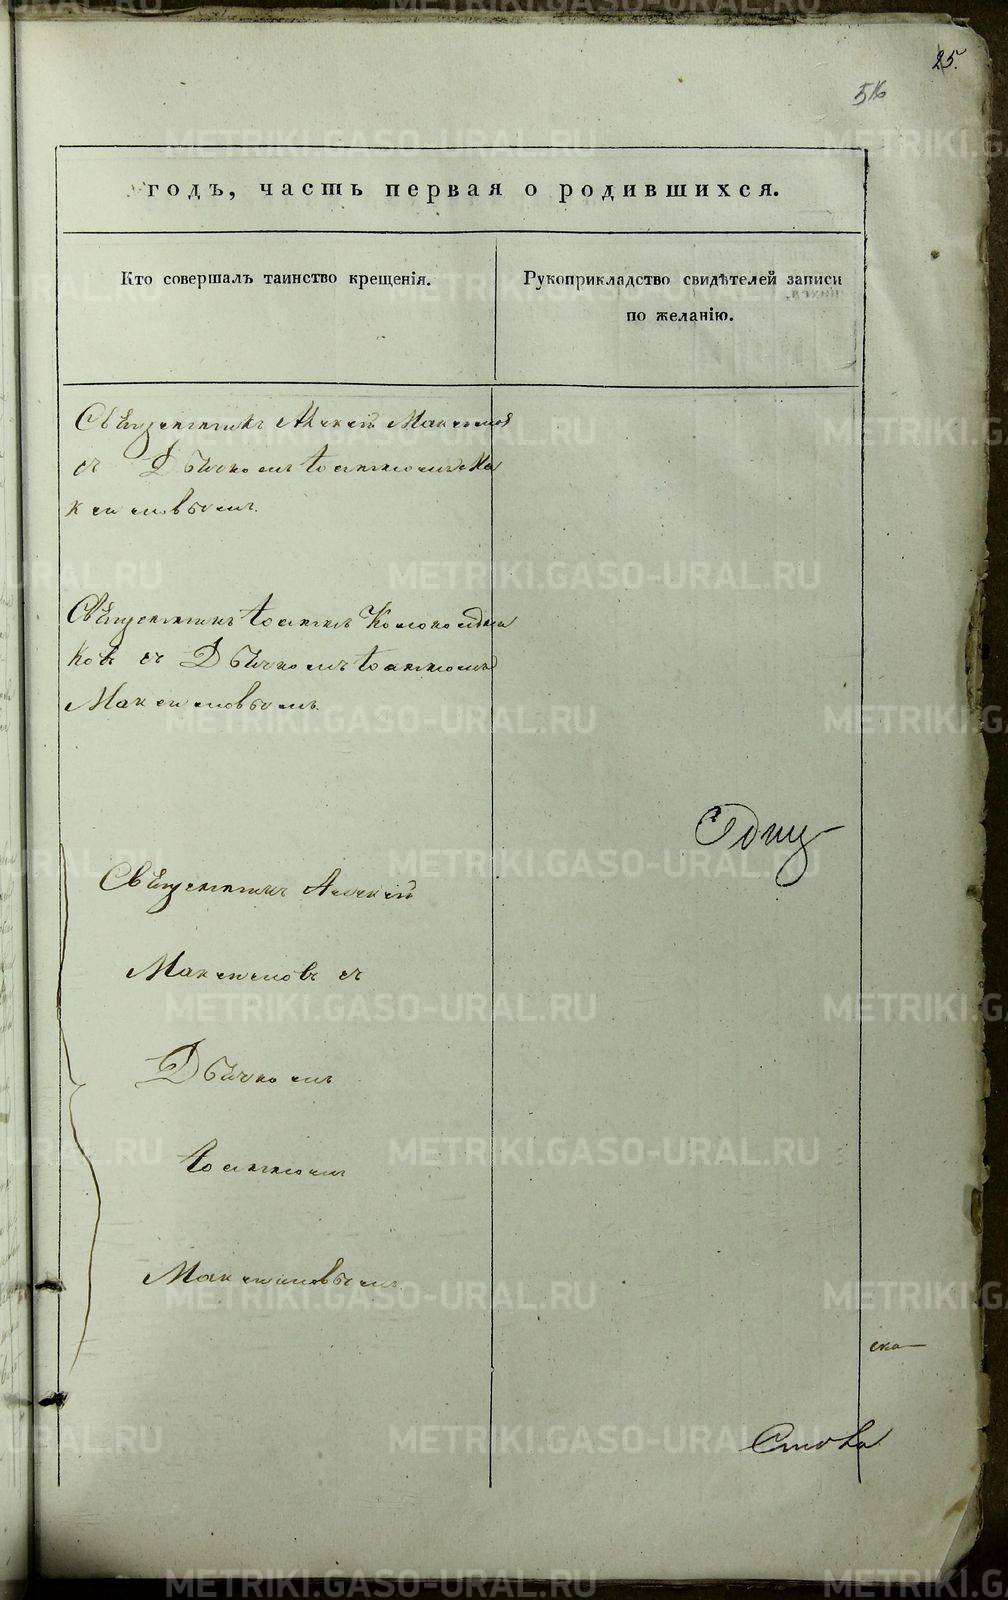 25.
516
годъ, часть первая о родившихся.
Кто совершалъ таинство крещенія.
Рукоприкладство свидѣтелей записи
по желанію.
Священникъ Алексѣй Максимовъ
съ Дьячкомъ Іоанномъ Ма
ксимовымъ.
Священникъ Іоаннъ Колокольни
ковъ съ Дьячкомъ Іоанномъ
Максимовымъ.
Священникъ Алексѣй
Максимовъ съ
Дьячкомъ
Іоанномъ
Максимовымъ
METRIKI.GASO-URAL.RU